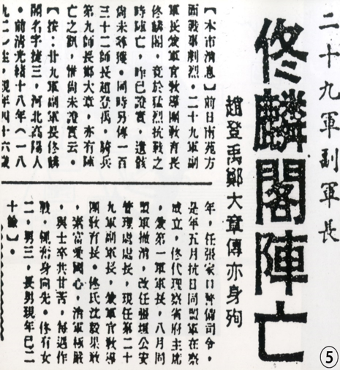 二十九軍副軍長
佟麟閣陣亡
趙登禹鄭大章傳亦身殉
【本市消息】前日南苑方
面戰事劇烈。二十九軍副
軍長兼軍官教導團教育長
佟麟閣，竟於猛烈抗戰之
時陣亡，昨已證實，遺骸
尚未尋獲。同時另傳一百
三十二師長趙登禹，騎兵
第九師長鄭大章，亦有陣
亡之訊，惟尚未證實云。
【按：廿九軍副軍長佟麟
閣名字捷三，河北高陽人
。前清光緒十八年（一八
九二）生，現年四十六歲
年，任張家口警備司令，
是年五月抗日同盟軍在察
成立，佟代理察省府主席
，兼第一軍軍長，八月同
盟軍撤消，改任張垣公安
管理處處長，現任第二十
九軍副軍長，兼軍官教導
團教育長。佟氏沈毅果敢
，素富愛國心，治軍極嚴
，與士卒共甘苦，每遇作
戰，輒奮身向先。佟有女
二，男三，長男現年已二
十餘】。
⑤